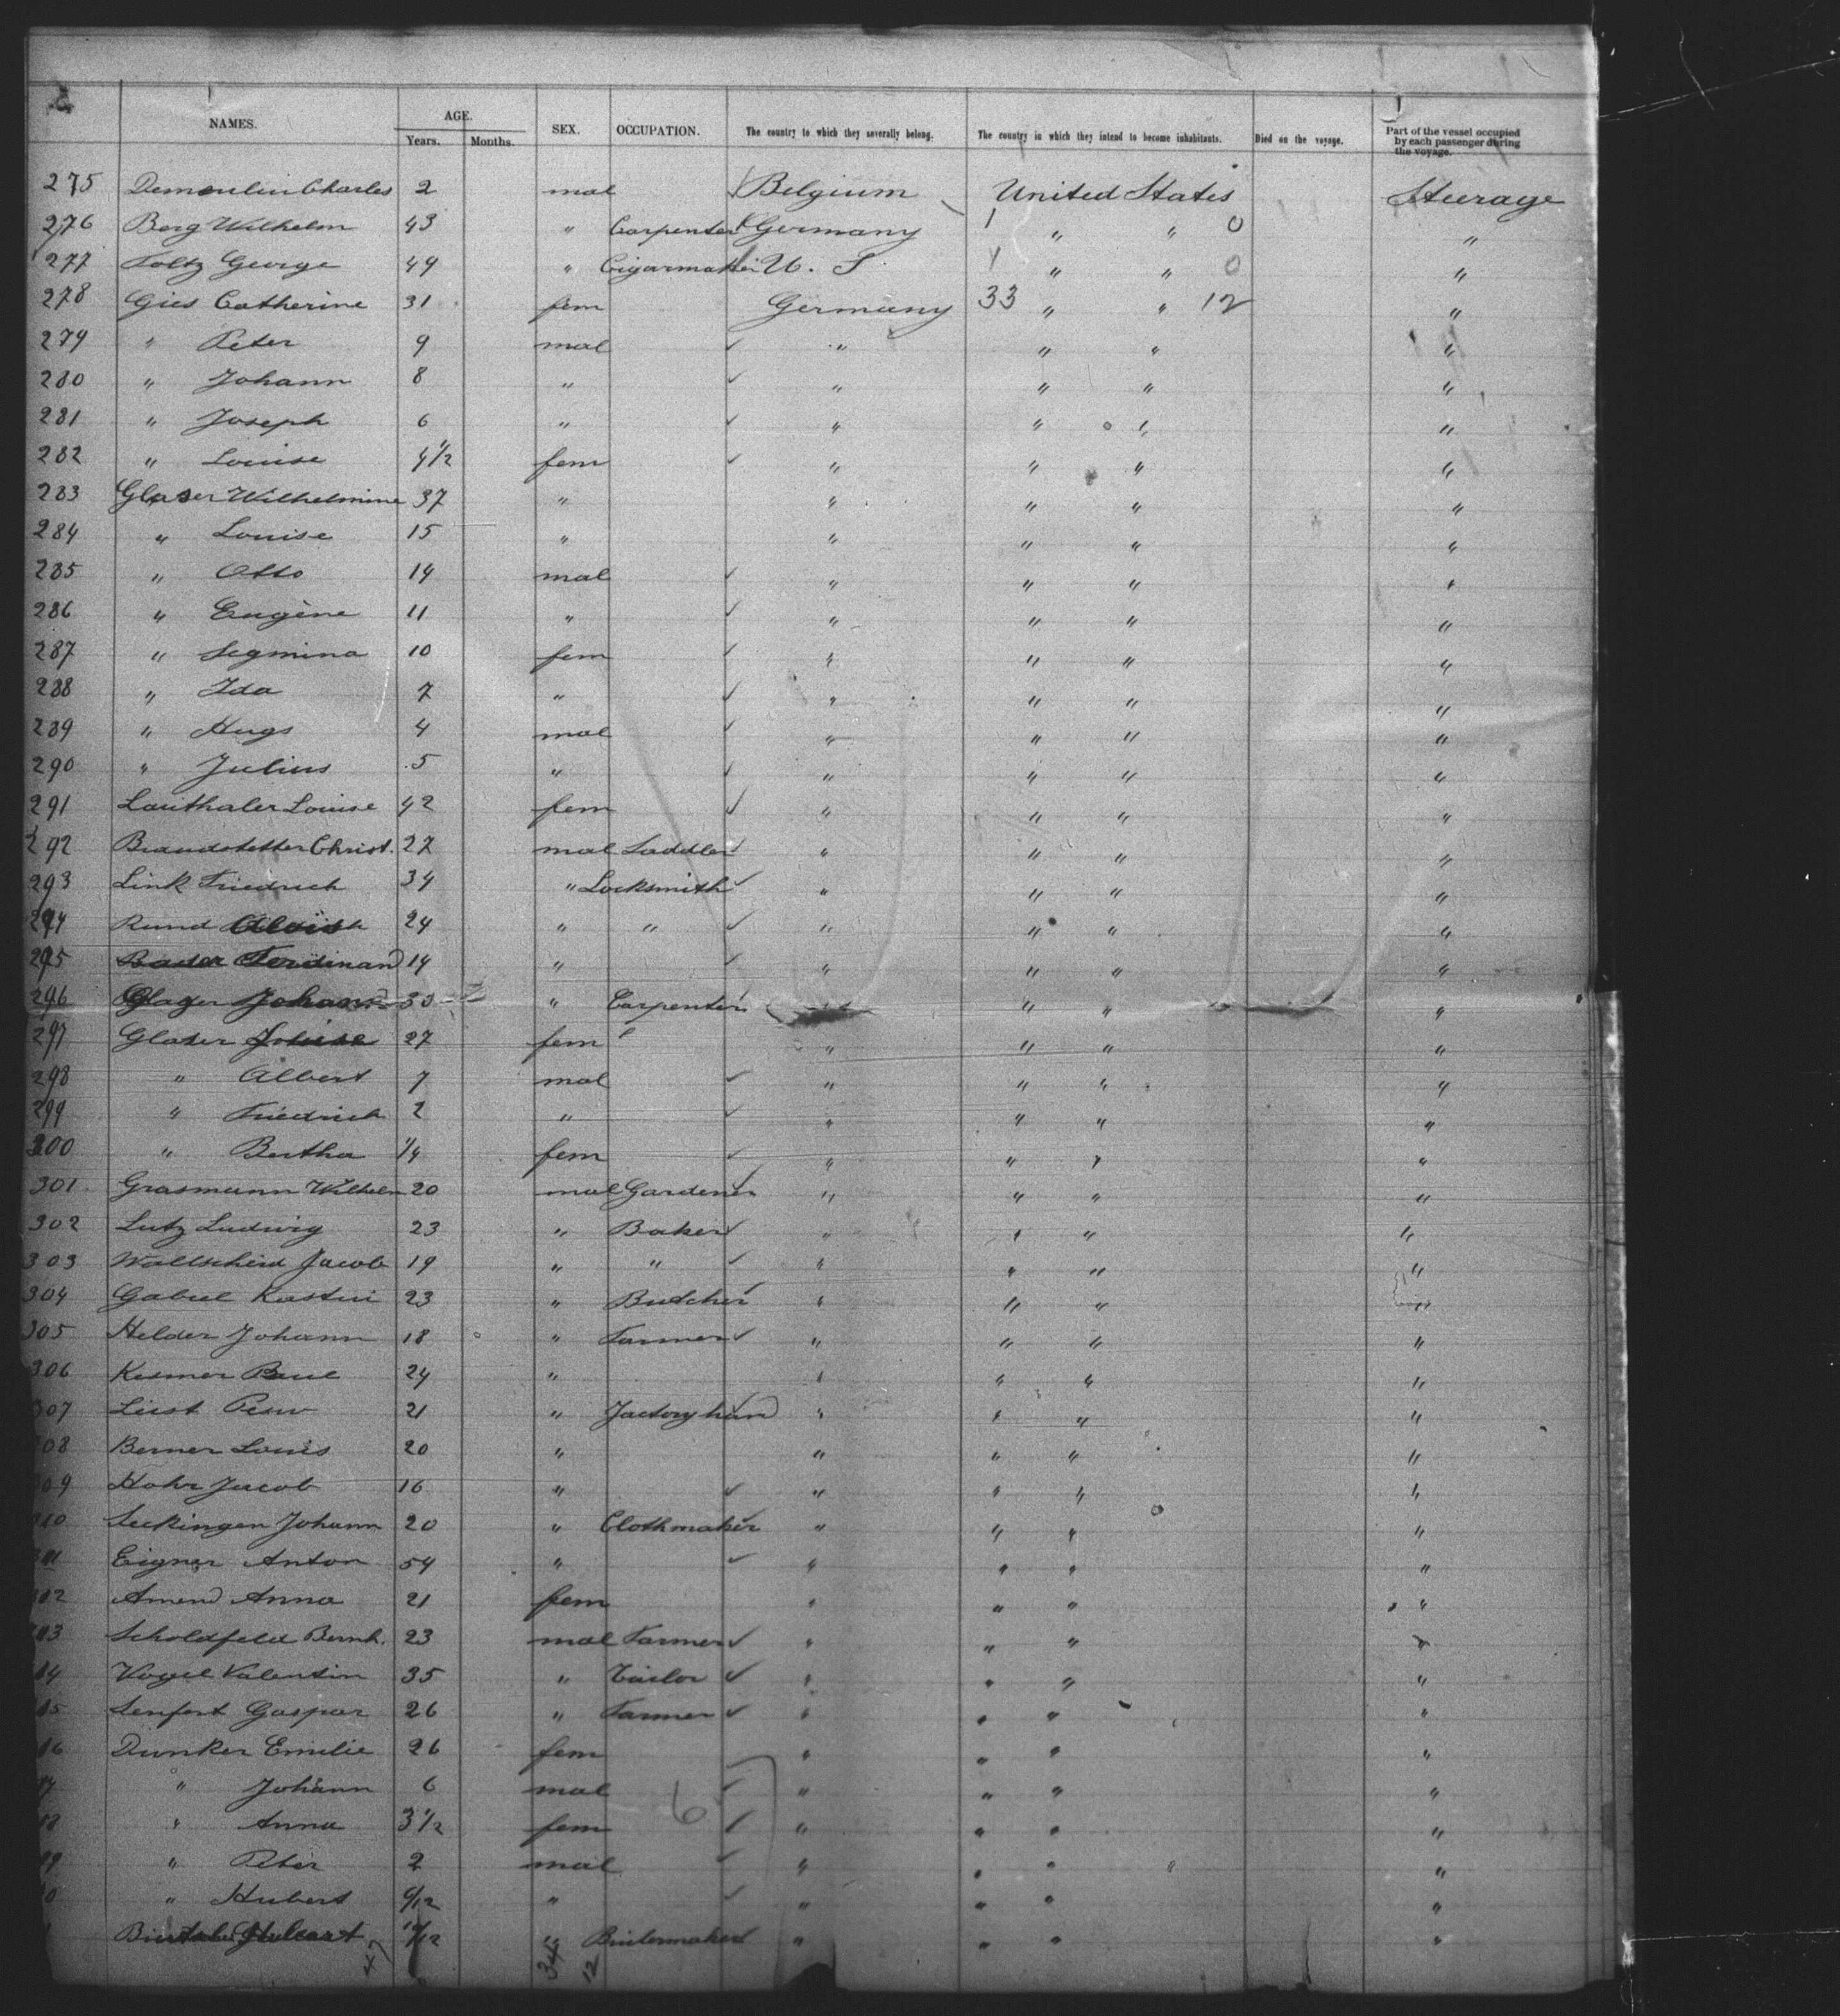 NAMES. AGE. Years. Months. SEX. OCCUPATION. The country to which they severally belong. The country in which they intend to become inhabitants. Died on the voyage. Part of the vessel occupied by each passenger during the voyage.
275 Demoulin Charles 2 mal Belgium United States Steerage
276 Berg Wilhelm 43 " Carpenter Germany 1 " " 0 "
277 Foltz George 49 " Cigarmaker U. S. 1 " " 0 "
278 Gies Catherine 31 fem Germany 33 " " 12 "
279 " Peter 9 mal " " " "
280 " Johann 8 " " " " "
281 " Joseph 6 " " " " "
282 " Louise 4 1/2 fem " " " "
283 Glaser Wilhelmine 37 " " " " "
284 " Louise 15 " " " " "
285 " Otto 14 mal " " " "
286 " Eugène 11 " " " " "
287 " Segmina 10 fem " " " "
288 " Ida 7 " " " " "
289 " Hugo 4 mal " " " "
290 " Julius 5 " " " " "
291 Lauthaler Louise 42 fem " " " "
292 Brandstetter Christ. 27 mal Saddler " " " "
293 Link Friedrich 34 " Locksmith " " " "
294 Rund 24 " " " " " "
295 Bader Ferdinand 14 " " " " "
296 Johann 33 " Carpenter " " "
297 Glaser Louise 27 fem " " " "
298 " Albert 7 mal " " " "
299 " Friedrich 2 " " " " "
300 " Bertha 1/4 fem " " " "
301 Grasmann Wilhelm 20 mal Gardener " " " "
302 Lutz Ludwig 23 " Baker " " " "
303 Wallscheid Jacob 19 " " " " " "
304 Gabriel 23 " Butcher " " " "
305 Helder Johann 18 " Farmer " " " "
306 24 " " " " "
307 21 " Factory hand " " " "
308 Berner Louis 20 " " " " "
309 Hohr Jacob 16 " " " " "
310 Seckingen Johann 20 " Clothmaker " " " "
311 Eigner Anton 54 " " " " "
312 Amend Anna 21 fem " " " "
313 Scholdfeld Bernh. 23 mal Farmer " " " "
314 Vogel Valentin 35 " Tailor " " " "
15 Senfert Gaspar 26 " Farmer " " " "
16 Dunker Emilie 26 fem " " " "
17 " Johann 6 mal " " " "
18 " Anna 3 1/2 fem 6 " " " "
19 " Peter 2 mal " " " "
0 " Hubert 6/12 " " " " "
" Boilermaker " " " "
47 34 12